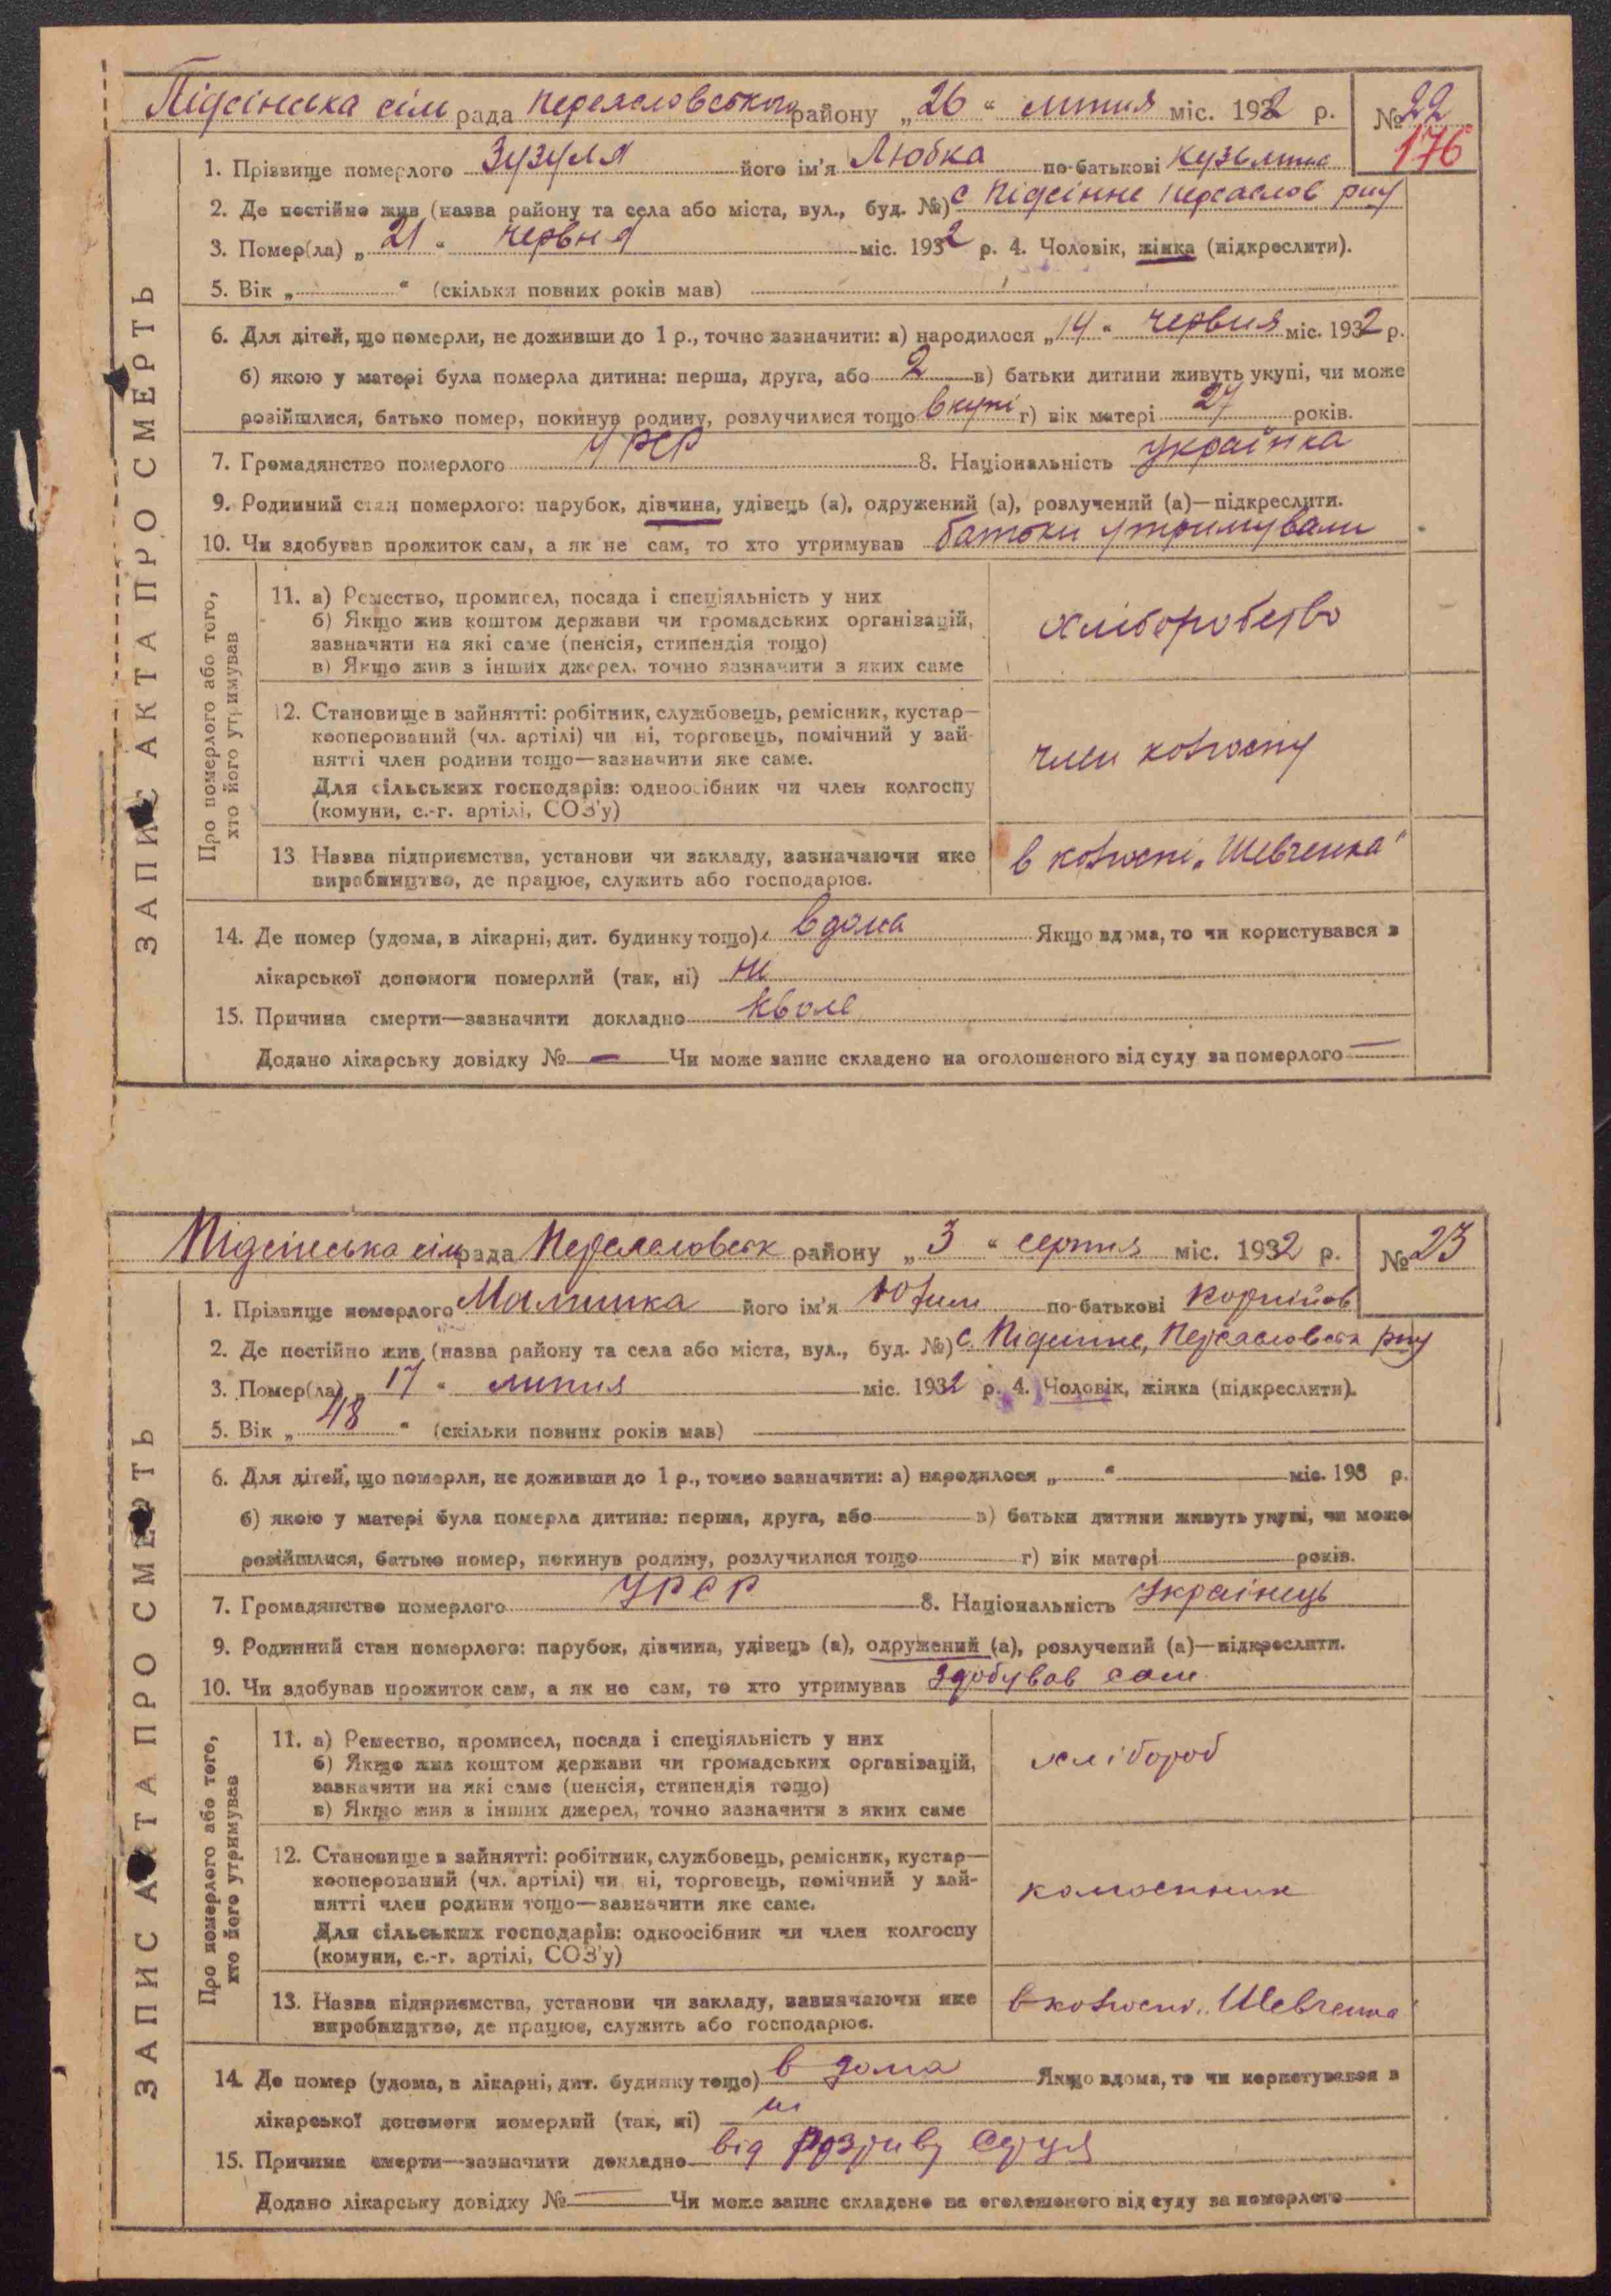 Підсінська сіл рада Переясловського району „26“ липня міс. 1932 р. № 22
176
1. Прізвище померлого Зузуля його ім'я Любка по-батькові Кузьмина
2. Де постійно жив (назва району та села або міста, вул., буд. №) с Підсінне Переаслов р-ну
3. Помер(ла) „21“ червня міс. 1932 р. 4. Чоловік, жінка (підкреслити).
5. Вік „ “ (скільки повних років мав)
6. Для дітей, що померли, не доживши до 1 р., точно зазначити: а) народилося „14“ червня міс. 1932 р.
б) якою у матері була померла дитина: перша, друга, або 2 в) батьки дитини живуть укупі, чи може
розійшлися, батько помер, покинув родину, розлучилися тощо вкупі г) вік матері 27 років.
7. Громадянство померлого УРСР 8. Національність українка
9. Родинний стан померлого: парубок, дівчина, удівець (а), одружений (а), розлучений (а)—підкреслити.
10. Чи здобував прожиток сам, а як не сам, то хто утримував батьки утримували
ЗАПИС АКТА ПРО СМЕРТЬ
Про померлого або того,
хто його утримував
11. а) Ремество, промисел, посада і спеціяльність у них
б) Якщо жив коштом держави чи громадських організацій,
зазначити на які саме (пенсія, стипендія тощо)
в) Якщо жив з інших джерел, точно зазначити з яких саме
хліборобство
12. Становище в зайнятті: робітник, службовець, ремісник, кустар—
кооперований (чл. артілі) чи ні, торговець, помічний у зай-
нятті член родини тощо—зазначити яке саме.
Для сільських господарів: одноосібник чи член колгоспу
(комуни, с.-г. артілі, СОЗ'у)
член колгоспу
13 Назва підприємства, установи чи закладу, зазначаючи яке
виробництво, де працює, служить або господарює.
в колгоспі „Шевченка“
14. Де помер (удома, в лікарні, дит. будинку тощо) вдома Якщо вдома, то чи користувався з
лікарської допомоги померлий (так, ні) ні
15. Причина смерти—зазначити докладно кволе
Додано лікарську довідку № — Чи може запис складено на оголошеного від суду за померлого —
Підсінська сіл рада Переясловськ району „3“ серпня міс. 1932 р. № 23
1. Прізвище померлого Малишка його ім'я Юхим по-батькові Корнійов
2. Де постійно жив (назва району та села або міста, вул., буд. №) с. Підсінне, Переасловськ р-ну
3. Помер(ла) „17“ липня міс. 1932 р. 4. Чоловік, жінка (підкреслити).
5. Вік „48“ (скільки повних років мав)
6. Для дітей, що померли, не доживши до 1 р., точно зазначити: а) народилося „ “ міс. 193 р.
б) якою у матері була померла дитина: перша, друга, або в) батьки дитини живуть укупі, чи може
розійшлися, батько помер, покинув родину, розлучилися тощо г) вік матері років.
7. Громадянство померлого УРСР 8. Національність Українець
9. Родинний стан померлого: парубок, дівчина, удівець (а), одружений (а), розлучений (а)—підкреслити.
10. Чи здобував прожиток сам, а як не сам, то хто утримував Здобував сам
ЗАПИС АКТА ПРО СМЕРТЬ
Про померлого або того,
хто його утримував
11. а) Ремество, промисел, посада і спеціяльність у них
б) Якщо жив коштом держави чи громадських організацій,
зазначити на які саме (пенсія, стипендія тощо)
в) Якщо жив з інших джерел, точно зазначити з яких саме
хлібороб
12. Становище в зайнятті: робітник, службовець, ремісник, кустар—
кооперований (чл. артілі) чи ні, торговець, помічний у зай-
нятті член родини тощо—зазначити яке саме.
Для сільських господарів: одноосібник чи член колгоспу
(комуни, с.-г. артілі, СОЗ'у)
колгоспник
13. Назва підприємства, установи чи закладу, зазначаючи яке
виробництво, де працює, служить або господарює.
в колгоспі „Шевченка
14. Де помер (удома, в лікарні, дит. будинку тощо) в дома Якщо вдома, то чи користувався з
лікарської допомоги померлий (так, ні) ні
15. Причина смерти—зазначити докладно від розриву серця
Додано лікарську довідку № — Чи може запис складено на оголошеного від суду за померлого —